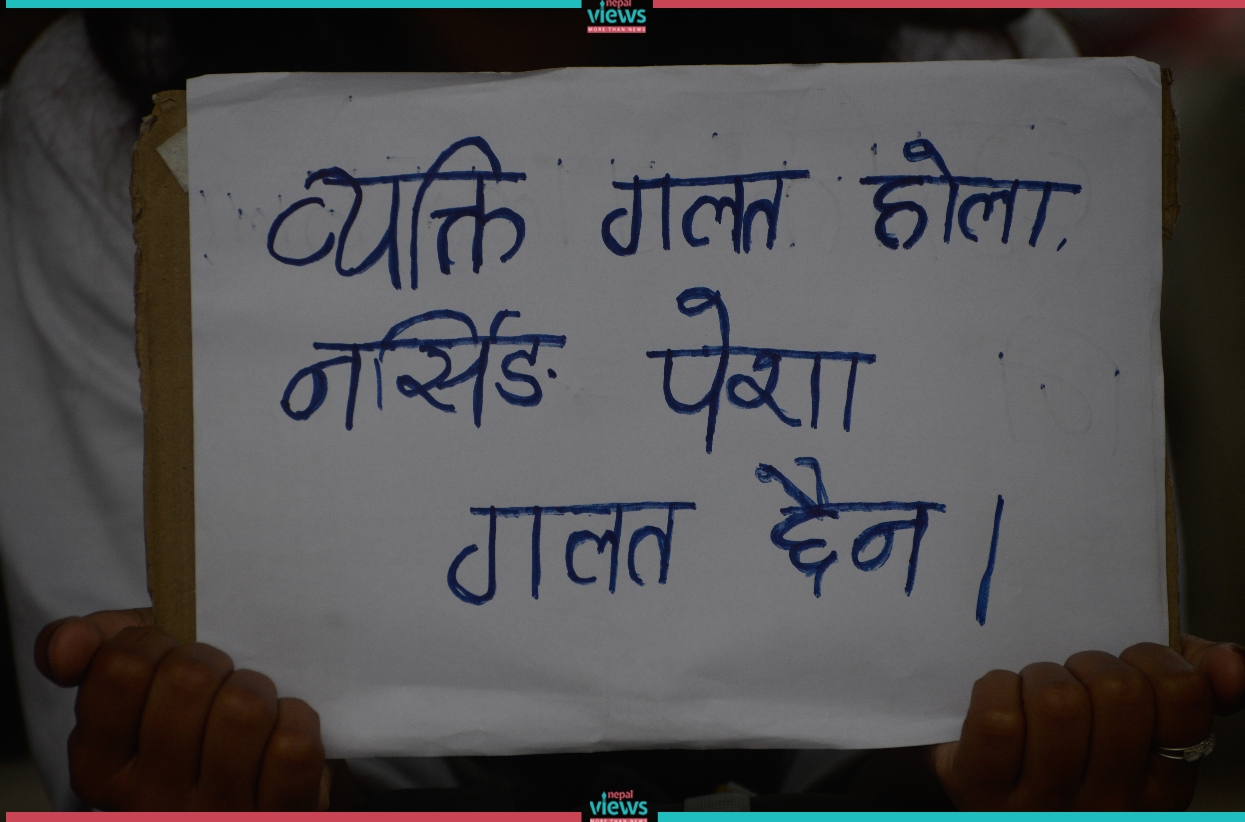 nepal
views
MORE THAN NEWS
व्यक्ति गलत होला,
नर्सिङ पेशा
गलत छैन ।
nepal
views
MORE THAN NEWS